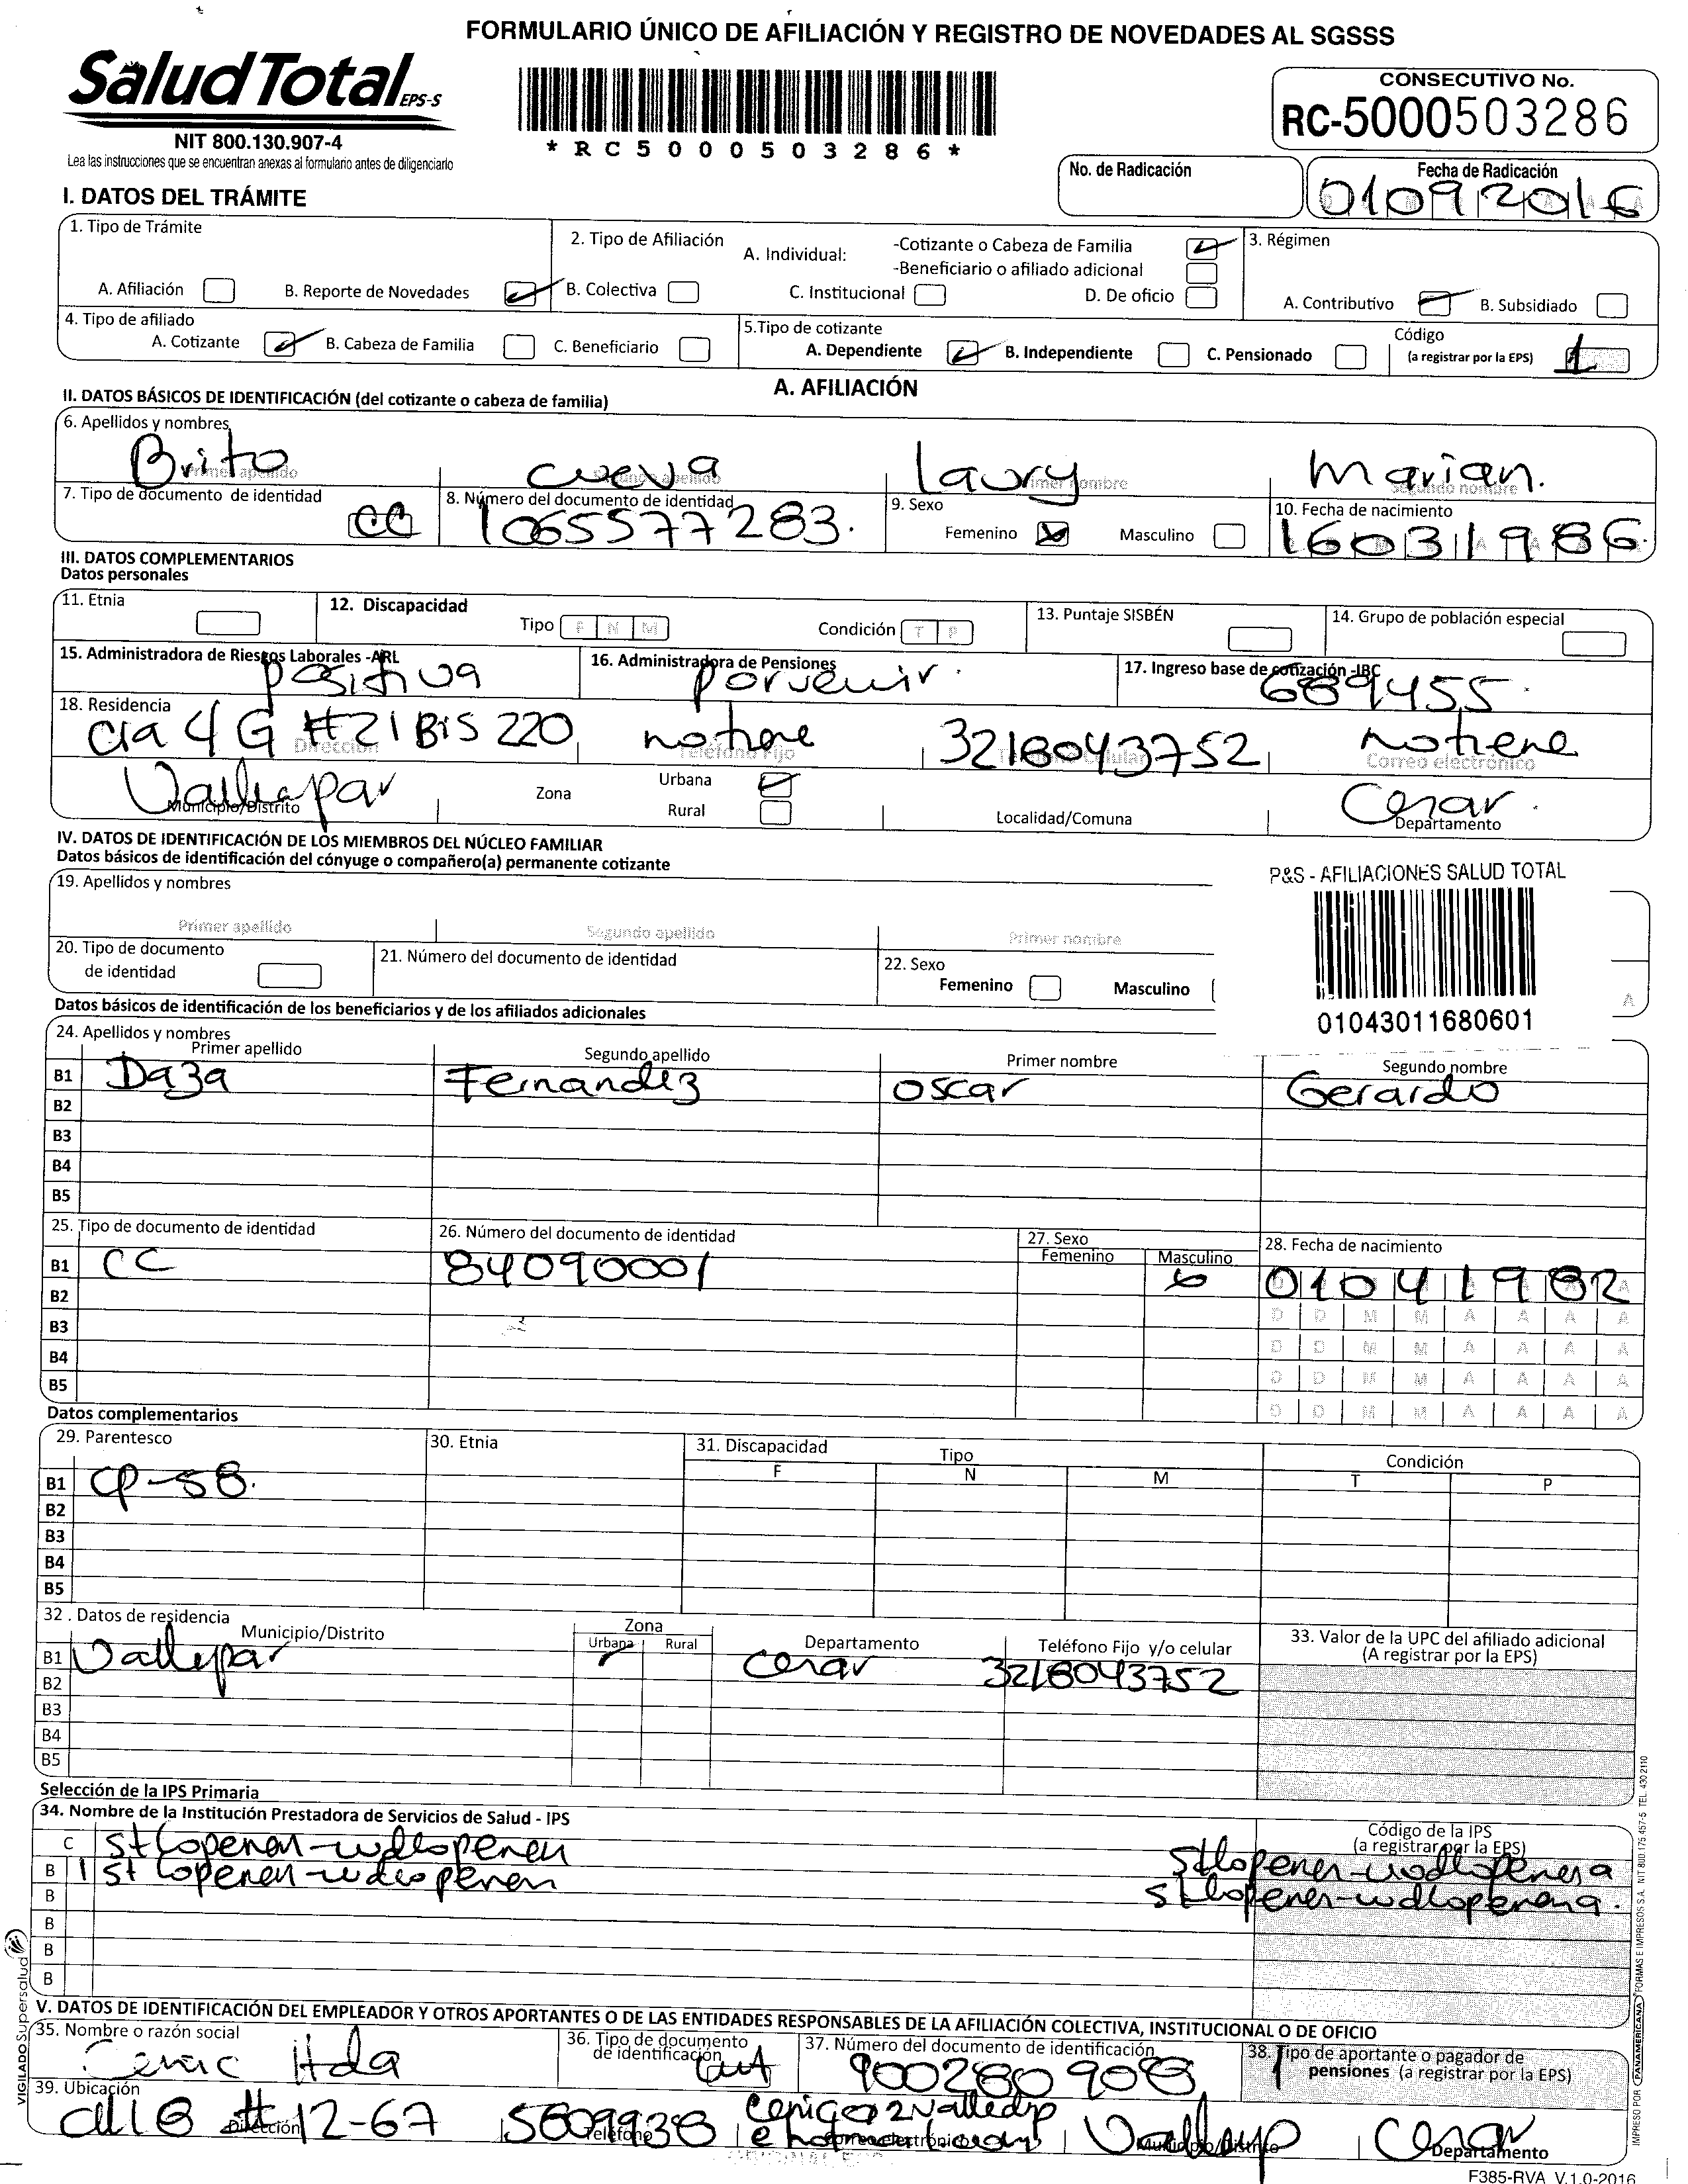 FORMULARIO ÚNICO DE AFILIACIÓN Y REGISTRO DE NOVEDADES AL SGSSS
SaludTotal EPS-S
NIT 800.130.907-4
Lea las instrucciones que se encuentran anexas al formulario antes de diligenciarlo
*RC5000503286*
CONSECUTIVO No.
RC-5000503286
No. de Radicación
Fecha de Radicación
01092016
I. DATOS DEL TRÁMITE
1. Tipo de Trámite
A. Afiliación B. Reporte de Novedades
2. Tipo de Afiliación A. Individual: -Cotizante o Cabeza de Familia
-Beneficiario o afiliado adicional
B. Colectiva C. Institucional D. De oficio
3. Régimen
A. Contributivo B. Subsidiado
4. Tipo de afiliado
A. Cotizante B. Cabeza de Familia C. Beneficiario
5.Tipo de cotizante
A. Dependiente B. Independiente C. Pensionado
Código
(a registrar por la EPS) 1
A. AFILIACIÓN
II. DATOS BÁSICOS DE IDENTIFICACIÓN (del cotizante o cabeza de familia)
6. Apellidos y nombres
Brito cueva Laury marian.
Primer apellido Segundo apellido Primer nombre Segundo nombre
7. Tipo de documento de identidad CC
8. Número del documento de identidad
1065577283.
9. Sexo
Femenino Masculino
10. Fecha de nacimiento
16031986
III. DATOS COMPLEMENTARIOS
Datos personales
11. Etnia
12. Discapacidad
Tipo F N M Condición T P
13. Puntaje SISBÉN
14. Grupo de población especial
15. Administradora de Riesgos Laborales -ARL
positiva
16. Administradora de Pensiones
porvenir.
17. Ingreso base de cotización -IBC
689455
18. Residencia
cra 4 G #21 BIS 220 no tiene 3218043752 no tiene
Dirección Teléfono Fijo Teléfono Celular Correo electrónico
Valledupar
Municipio/Distrito
Zona
Urbana
Rural
Localidad/Comuna
Cesar.
Departamento
IV. DATOS DE IDENTIFICACIÓN DE LOS MIEMBROS DEL NÚCLEO FAMILIAR
Datos básicos de identificación del cónyuge o compañero(a) permanente cotizante
P&S - AFILIACIONES SALUD TOTAL
01043011680601
19. Apellidos y nombres
Primer apellido Segundo apellido Primer nombre
20. Tipo de documento
de identidad
21. Número del documento de identidad
22. Sexo
Femenino Masculino
A
Datos básicos de identificación de los beneficiarios y de los afiliados adicionales
24. Apellidos y nombres
Primer apellido Segundo apellido Primer nombre Segundo nombre
B1 Daza Fernandez oscar Gerardo
B2
B3
B4
B5
25. Tipo de documento de identidad 26. Número del documento de identidad 27. Sexo 28. Fecha de nacimiento
Femenino Masculino
B1 CC 84090001 01041982
B2 D D M M A A A A
B3 D D M M A A A A
B4 D D M M A A A A
B5 D D M M A A A A
Datos complementarios
29. Parentesco 30. Etnia 31. Discapacidad Tipo Condición
F N M T P
B1 CP-58.
B2
B3
B4
B5
32. Datos de residencia
Municipio/Distrito Zona Departamento Teléfono Fijo y/o celular
Urbana Rural
33. Valor de la UPC del afiliado adicional
(A registrar por la EPS)
B1 Vallepar Cesar 3218043752
B2
B3
B4
B5
Selección de la IPS Primaria
34. Nombre de la Institución Prestadora de Servicios de Salud - IPS
Código de la IPS
(a registrar por la EPS)
C
B 1
B
B
B
B
V. DATOS DE IDENTIFICACIÓN DEL EMPLEADOR Y OTROS APORTANTES O DE LAS ENTIDADES RESPONSABLES DE LA AFILIACIÓN COLECTIVA, INSTITUCIONAL O DE OFICIO
35. Nombre o razón social
ltda
36. Tipo de documento
de identificación
37. Número del documento de identificación
900280908
38. Tipo de aportante o pagador de
pensiones (a registrar por la EPS)
1
39. Ubicación
#12-67 5809938
Dirección Teléfono Correo electrónico Municipio/Distrito
Cesar
Departamento
F385-RVA V.1.0-2016
VIGILADO Supersalud
IMPRESO POR PANAMERICANA FORMAS E IMPRESOS S.A. NIT 800.175.457-5 TEL. 430 2110